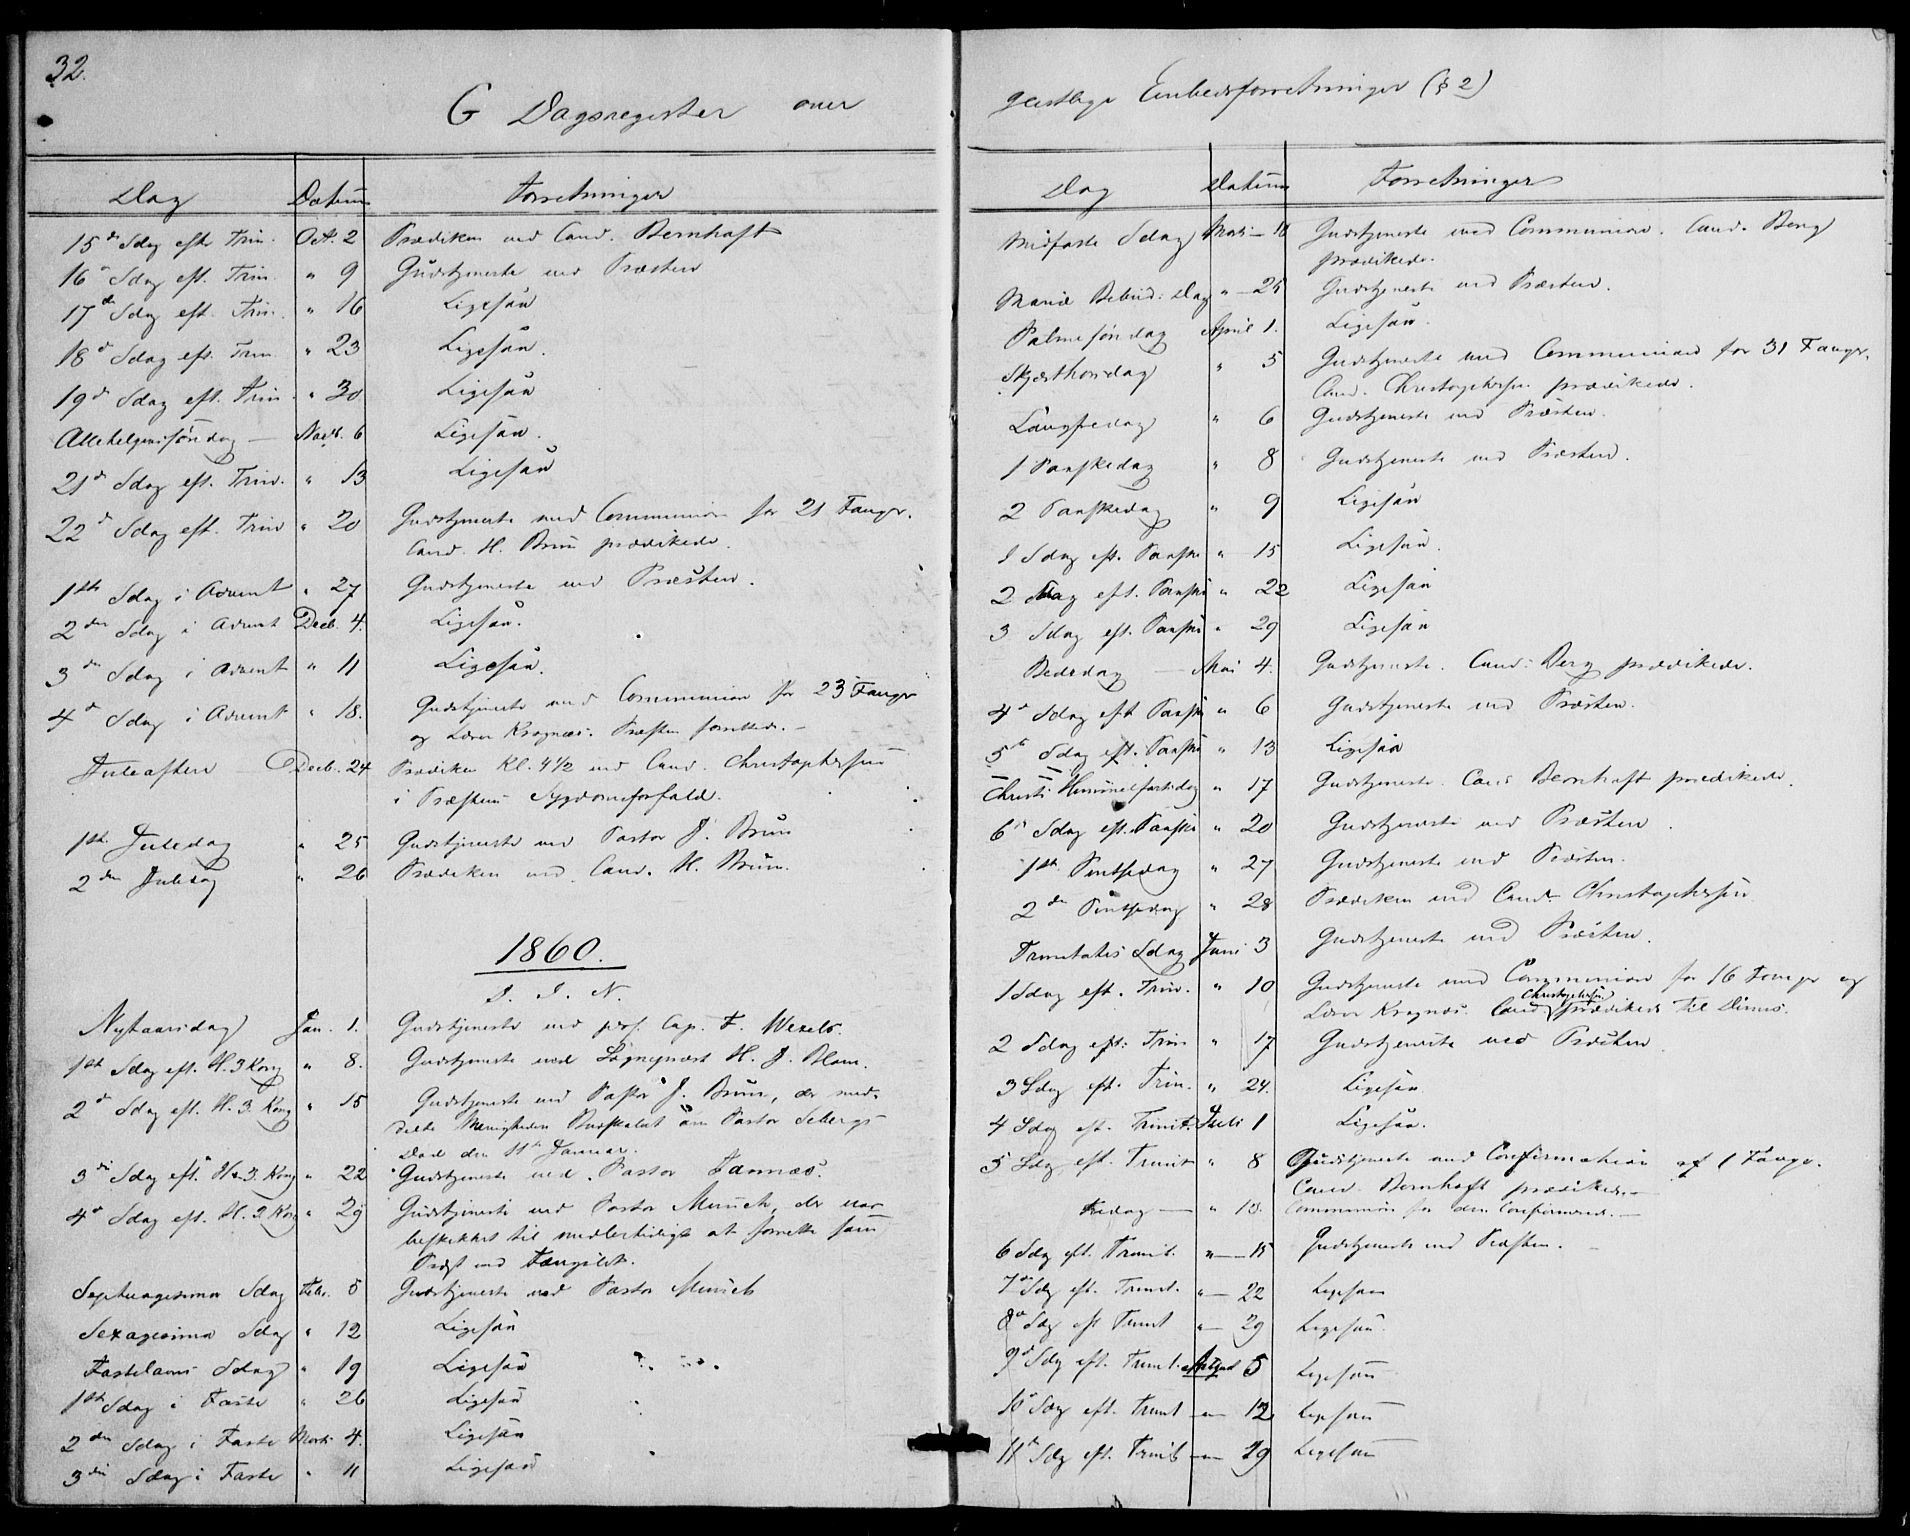 32.
G Dagsregister over
Dag Datum Forretninger
15de Sdag efter Trin. Oct. 2 Prædiken ved Cand. Bernhoft
16de Sdag eft. Trin. " 9 Gudstjeneste ved Præsten
17de Sdag eft. Trin. " 16 Ligesaa
18de Sdag eft. Trin. " 23 Ligesaa.
19de Sdag eft. Trin. " 30 Ligesaa
Allehelgensöndag — Novb. 6 Ligesaa.
21de Sdag eft. Trin. " 13 Ligesaa
22de Sdag eft. Trin " 20 Gudstjeneste med Communion for 21 Fanger.
Cand. H. Brun prædikede.
1ste Sdag i Advent " 27 Gudstjeneste ved Præsten.
2den Sdag i Advent Decb. 4. Ligesaa.
3die Sdag i Advent " 11 Ligesaa.
4de Sdag i Advent " 18. Gudstjeneste med Communion for 23 Fanger
og Lærer Kragnæs. Præsten forrettede. —
Juleaften Decb. 24 Prædiken Kl. 4 1/2 ved Cand. Christophersen
i Præstens Sygdomsforfald.
1ste Juledag " 25 Gudstjeneste ved Pastor J. Brun
2den Juledag " 26 Prædiken ved Cand. H. Brun.
1860.
I. J. N.
Nytaarsdag Jan. 1. Gudstjeneste ved pers. Cap. F. Wexels.
1ste Sdag eft. H. 3 Kong " 8. Gudstjeneste ved Sognepræst H. J. Blom.
2d Sdag eft. H. 3. Kong " 15 Gudstjeneste ved Pastor J. Brun, der med-
delte Menigheden Budskabet om Pastor Sebergs
Död den 11te Januar.
3die Sdag eft. H. 3. Kong " 22 Gudstjeneste ved Pastor Farnæs.
4de Sdag eft. H. 3 Kong " 29 Gudstjeneste ved Pastor Munch, der var
beskikket til midlertidigt at forrette som
Præst ved Fængslet.
Septuagesima Sdag Febr. 5 Gudstjeneste ved Pastor Munch
Sexagesima Sdag " 12 Ligesaa
Fastelavns Sdag " 19 Ligesaa
1ste Sdag i Faste " 26 Ligesaa
2den Sdag i Faste Marts 4. Ligesaa
3die Sdag i Faste " 11 Ligesaa
geistlige Embedsforretninger (§ 2)
Dag Datum Forretninger
Midfaste Sdag Marts — 18 Gudstjeneste med Communion. Cand. Berg
prædikede.
Mariæ Bebud. Dag " — 25 Gudstjeneste ved Præsten.
Palmesöndag April 1. Ligesaa.
Skjærthorsdag " 5 Gudstjeneste med Communion for 31 Fanger.
Cand. Christophersen prædikede.
Langfredag " 6 Gudstjeneste ved Præsten.
1 Paaskedag " 8 Gudstjeneste ved Præsten.
2 Paaskedag " 9 Ligesaa
1 Sdag eft. Paaske " 15 Ligesaa.
2 Sdag eft. Paaske " 22 Ligesaa
3 Sdag eft. Paaske " 29 Ligesaa
Bededag — Mai 4. Gudstjeneste. Cand. Berg prædikede.
4de Sdag eft Paaske " 6 Gudstjeneste ved Præsten.
5te Sdag eft. Paaske " 13 Ligesaa
Christi Himmelfartsdag " 17 Gudstjeneste. Cand Bernhoft prædikede.
6te Sdag eft. Paaske " 20 Gudstjeneste ved Præsten.
1ste Pintsedag " 27 Gudstjeneste ved Præsten.
2den Pintsedag " 28 Prædiken ved Cand. Christophersen
Trinitatis Sdag Juni 3 Gudstjeneste ved Præsten.
1 Sdag eft. Trin. " 10 Gudstjeneste med Communion for 16 Fanger og
Lærer Kragnæs. Cand. Christophersen prædikede til Dimis.
2 Sdag eft. Trin " 17 Gudstjeneste ved Præsten.
3 Sdag eft. Trin. " 24. Ligesaa
4 Sdag eft. Trinit. Juli 1 Ligesaa.
5 Sdag eft. Trinit " 8 Gudstjeneste med Confirmation af 1 Fange.
Cand. Bernhoft prædikede. —
Fredag — " 13. Communion for den Confirmerede. —
6 Sdag eft. Trinit. " — 15 Gudstjeneste ved Præsten. —
7de Sdag eft. Trinit. " — 22 Ligesaa
8de Sdag eft Trinit " — 29 Ligesaa.
9de Sdag eft. Trinit. August 5 Ligesaa
10de Sdag eft. Trinit — " — 12 Ligesaa
11te Sdag eft. Trinit — " — 19 Ligesaa